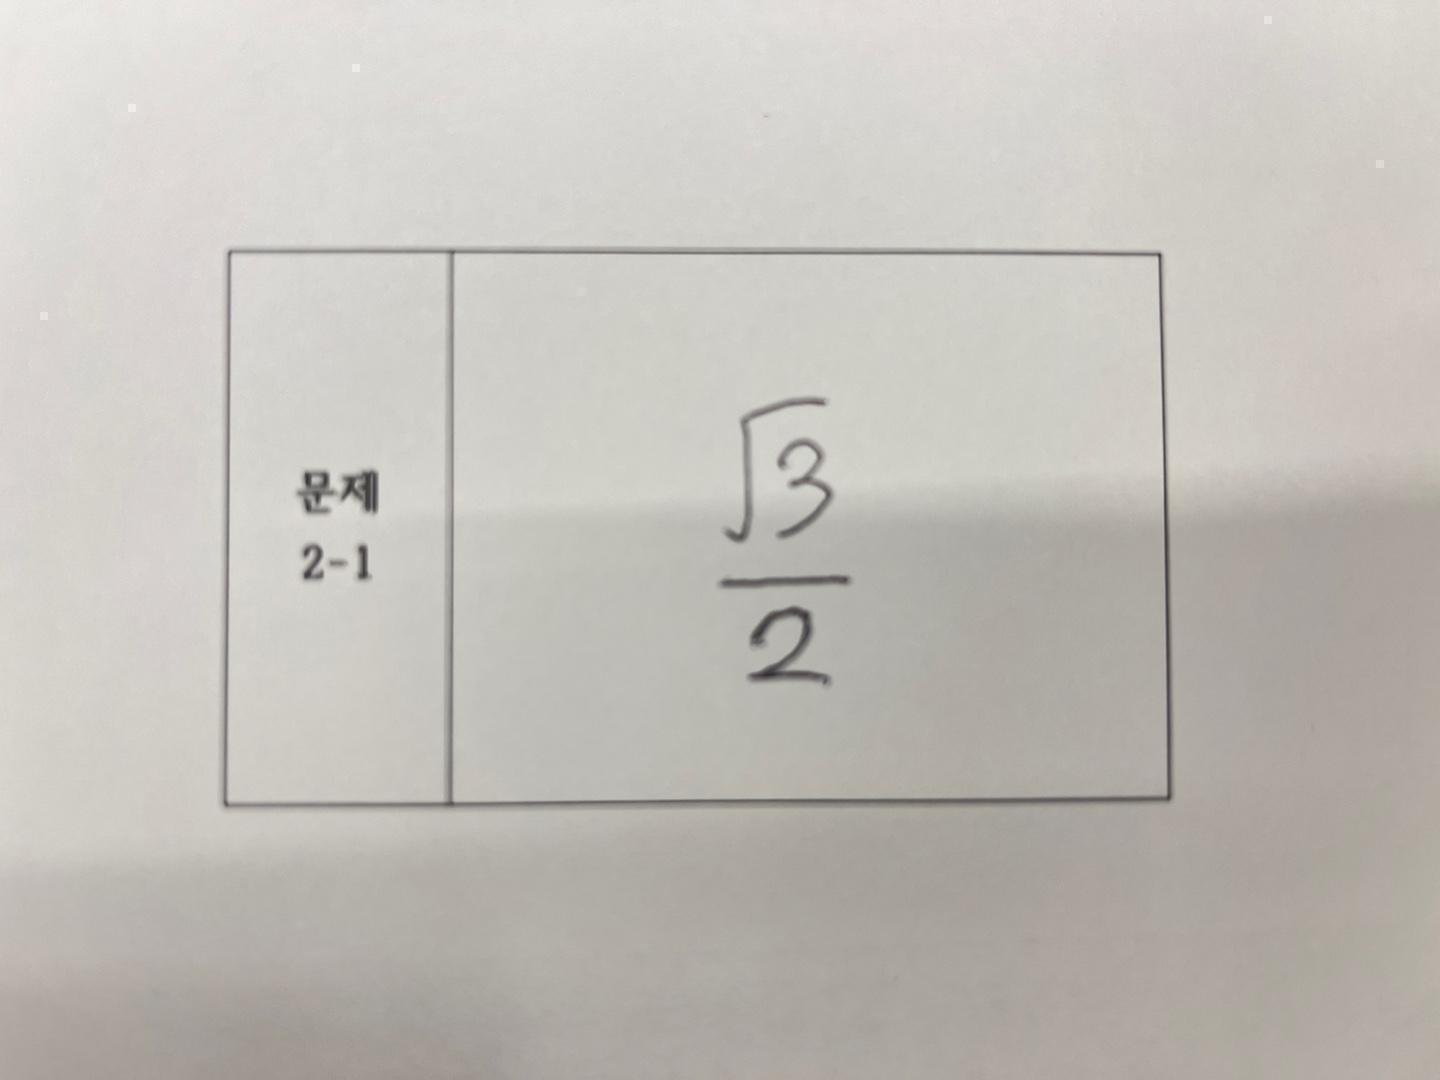 문제
2-1
√3
2